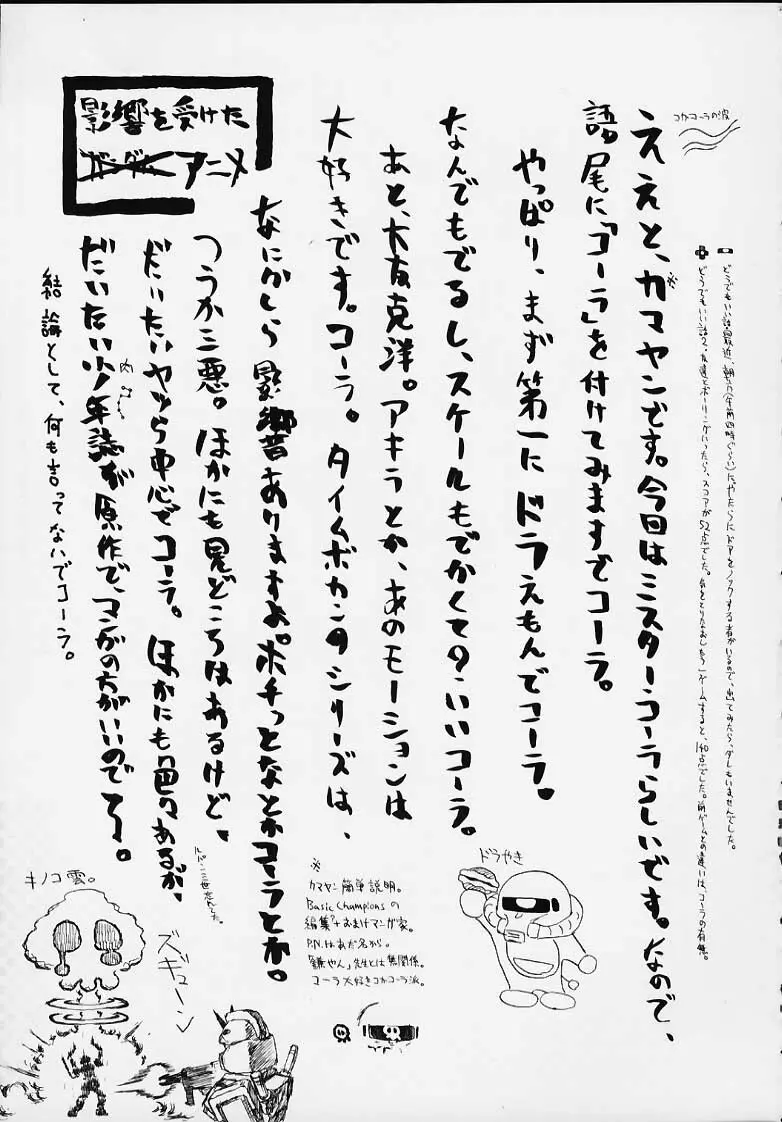 コカコーラの波
どうでもいい話 最近、朝方(午前四時ぐらい)にやたらにドアをノックする者がいるので、出てみたら、ダレもいませんでした。
どうでもいい話2、友達とボーリングいったら、スコアが52点でした。気をとりなおしもう1ゲームすると、140点でした。前ゲームとの違いは、コーラの有無。
ええと、カマヤンです。今回はミスターコーラらしいです。なので、
※
語尾に「コーラ」を付けてみますでコーラ。
やっぱり、まず第一にドラえもんでコーラ。
なんでもでるし、スケールもでかくてグ・いいコーラ。
あと、大友克洋。アキラとか、あのモーションは
大好きです。コーラ。タイムボカンシリーズは、
なにかしら影響ありますよ。ポチっとなとかコーラとか。
つうか三悪。ほかにも見どころはあるけど、
だいたいヤツら中心でコーラ。ほかにも色々あるが、
ルパン三世なんでした。
だいたい少年誌が原作で、マンガの方がいいのでコーラ。
結論として、何も言ってないでコーラ。
影響を受けた
ガンダム アニメ
ドラやき
※
カマヤン簡単説明。
Basic Championsの
編集?+おまけマンガ家。
P.N.はあだ名から。
「鎌やん」先生とは無関係。
コーラ大好きコカコーラ派。
キノコ雲。
ズギューン